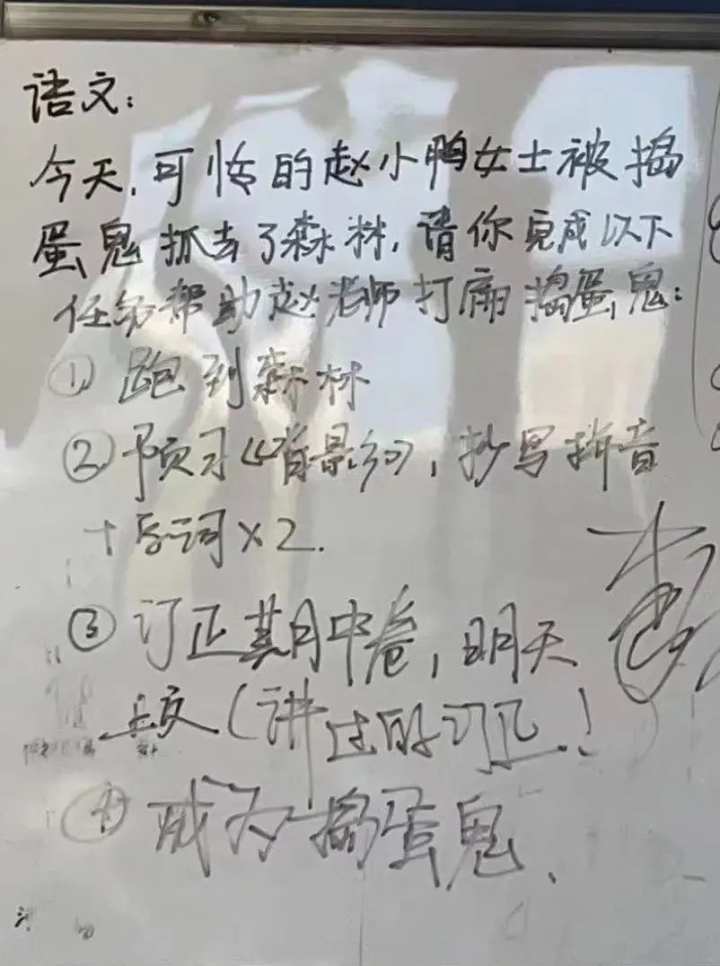 语文:
今天,可怜的赵小鸭女士被捣
蛋鬼抓去了森林,请你完成以下
任务帮助赵老师打扁捣蛋鬼:
① 跑到森林
② 预习《背影》,抄写拼音
+写词×2.
③ 订正期中卷,明天
上交(讲过的订正!)
④ 成为捣蛋鬼.